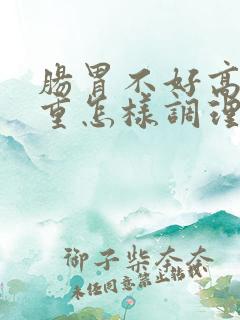 腸胃不好高
重怎樣調理
御子柴奈奈
未經同意禁止轉載